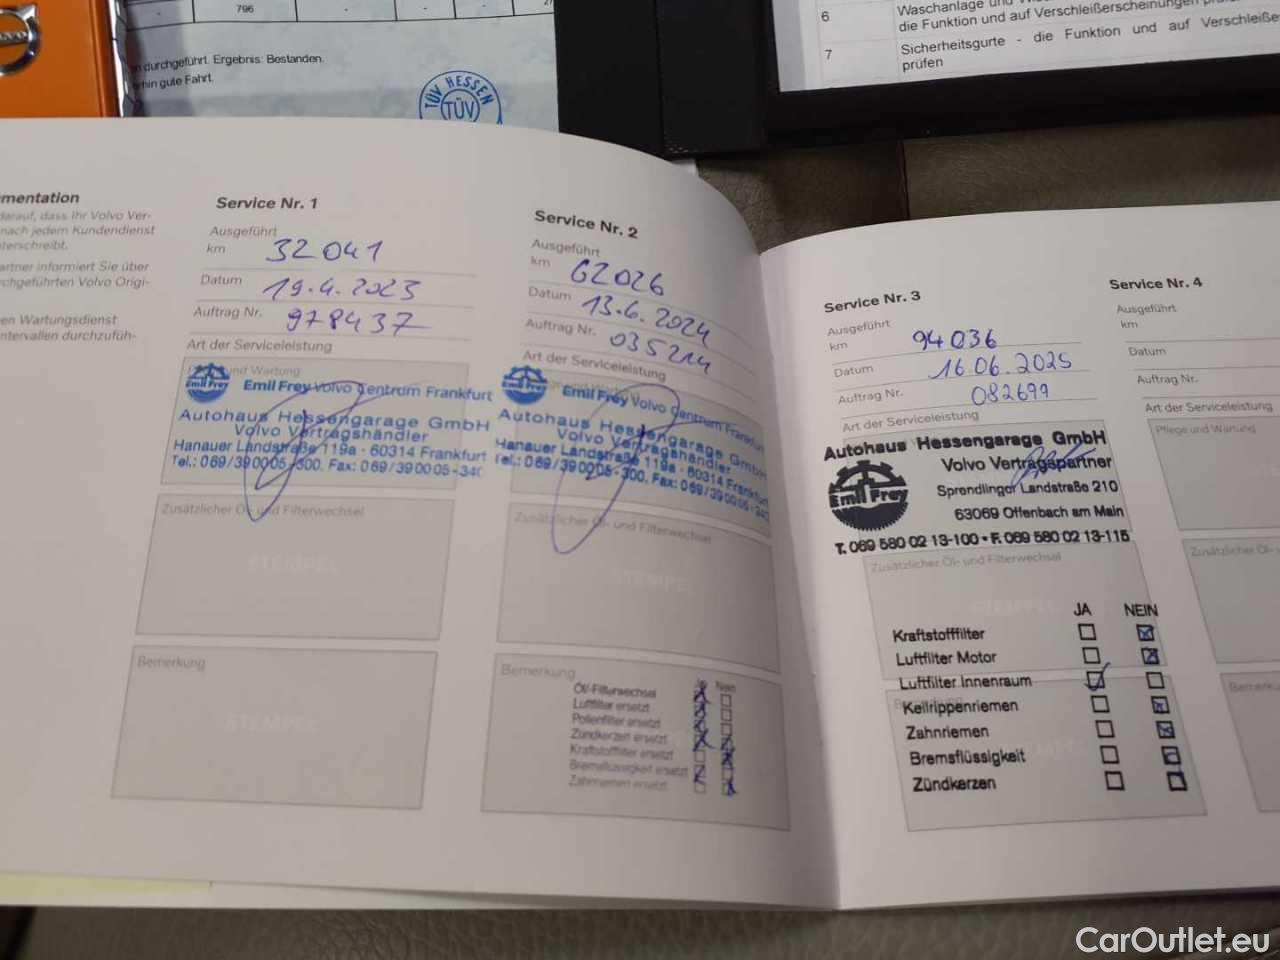 796
-
-
-
n durchgeführt. Ergebnis: Bestanden.
hin gute Fahrt.
TÜV HESSEN
TÜV
6
Waschanlage und
die Funktion und auf Verschleißerscheinungen
7
Sicherheitsgurte - die Funktion und auf Verschleiße
prüfen
mentation
darauf, dass Ihr Volvo Ver-
nach jedem Kundendienst
terschreibt.
artner informiert Sie über
chgeführten Volvo Origi-
en Wartungsdienst
ntervallen durchzufüh-
Service Nr. 1
Ausgeführt
km 32041
Datum 19.4.2023
Auftrag Nr. 978437
Art der Serviceleistung
und Wartung
Emil Frey
Emil Frey Volvo Centrum Frankfurt
Autohaus Hessengarage GmbH
Volvo Vertragshändler
Hanauer Landstraße 119a - 60314 Frankfurt
Tel.: 069/390005-300, Fax: 069/39005-340
Zusätzlicher Öl- und Filterwechsel
STEMPEL
Bemerkung
STEMPEL
Service Nr. 2
Ausgeführt
km 62026
Datum 13.6.2024
Auftrag Nr. 035214
Art der Serviceleistung
Emil Frey
Emil Frey Volvo Centrum Frankfurt
Autohaus Hessengarage GmbH
Volvo Vertragshändler
Hanauer Landstraße 119a - 60314 Frankfurt
Tel.: 069/390005-300, Fax: 069/390005-340
Zusätzlicher Öl- und Filterwechsel
STEMPEL
Bemerkung
Ja Nein
Öl/-Filterwechsel
Luftfilter ersetzt
Pollenfilter ersetzt
Zündkerzen ersetzt
Kraftstofffilter ersetzt
Bremsflüssigkeit ersetzt
Zahnriemen ersetzt
Service Nr. 3
Ausgeführt
km 94036
Datum 16.06.2025
Auftrag Nr. 082699
Art der Serviceleistung
Autohaus Hessengarage GmbH
Volvo Vertragspartner
Emil Frey
Sprendlinger Landstraße 210
63069 Offenbach am Main
T. 069 580 02 13-100 • F. 069 580 02 13-115
Zusätzlicher Öl- und Filterwechsel
STEMPEL
JA NEIN
Kraftstofffilter
Luftfilter Motor
Luftfilter Innenraum
Keilrippenriemen
Zahnriemen
Bremsflüssigkeit
Zündkerzen
Service Nr. 4
Ausgeführt
km
Datum
Auftrag Nr.
Art der Serviceleistung
Pflege und Wartung
Zusätzlicher Öl- u
Bemerku
CarOutlet.eu